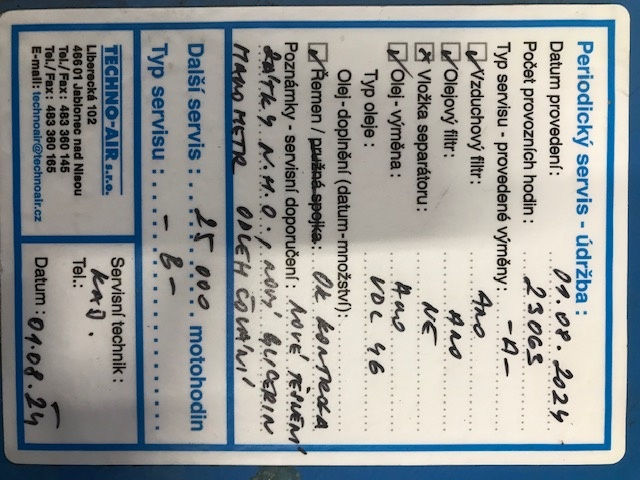 Periodický servis - údržba :
Datum provedení : 01.08.2024
Počet provozních hodin : 23063
Typ servisu - provedené výměny : -A-
Vzduchový filtr : Ano
Olejový filtr : Ano
Vložka separátoru : NE
Olej - výměna : Ano
Typ oleje : VDL 46
Olej - doplnění (datum - množství) :
Řemen / pružná spojka : OK KONTROLA
Poznámky - servisní doporučení : NOVÉ TĚSNĚNÍ
ZÁTKY N.M.O., NOVÝ GLICERIN
MANOMETR ODLEHČOVÁNÍ
Další servis : 25 000 motohodin
Typ servisu : - B -
TECHNO-AIR s.r.o.
Liberecká 102
466 01 Jablonec nad Nisou
Tel./ Fax : 483 360 145
Tel./ Fax : 483 360 165
E-mail: technoair@technoair.cz
Servisní technik :
Tel.:
Datum : 01.08.24